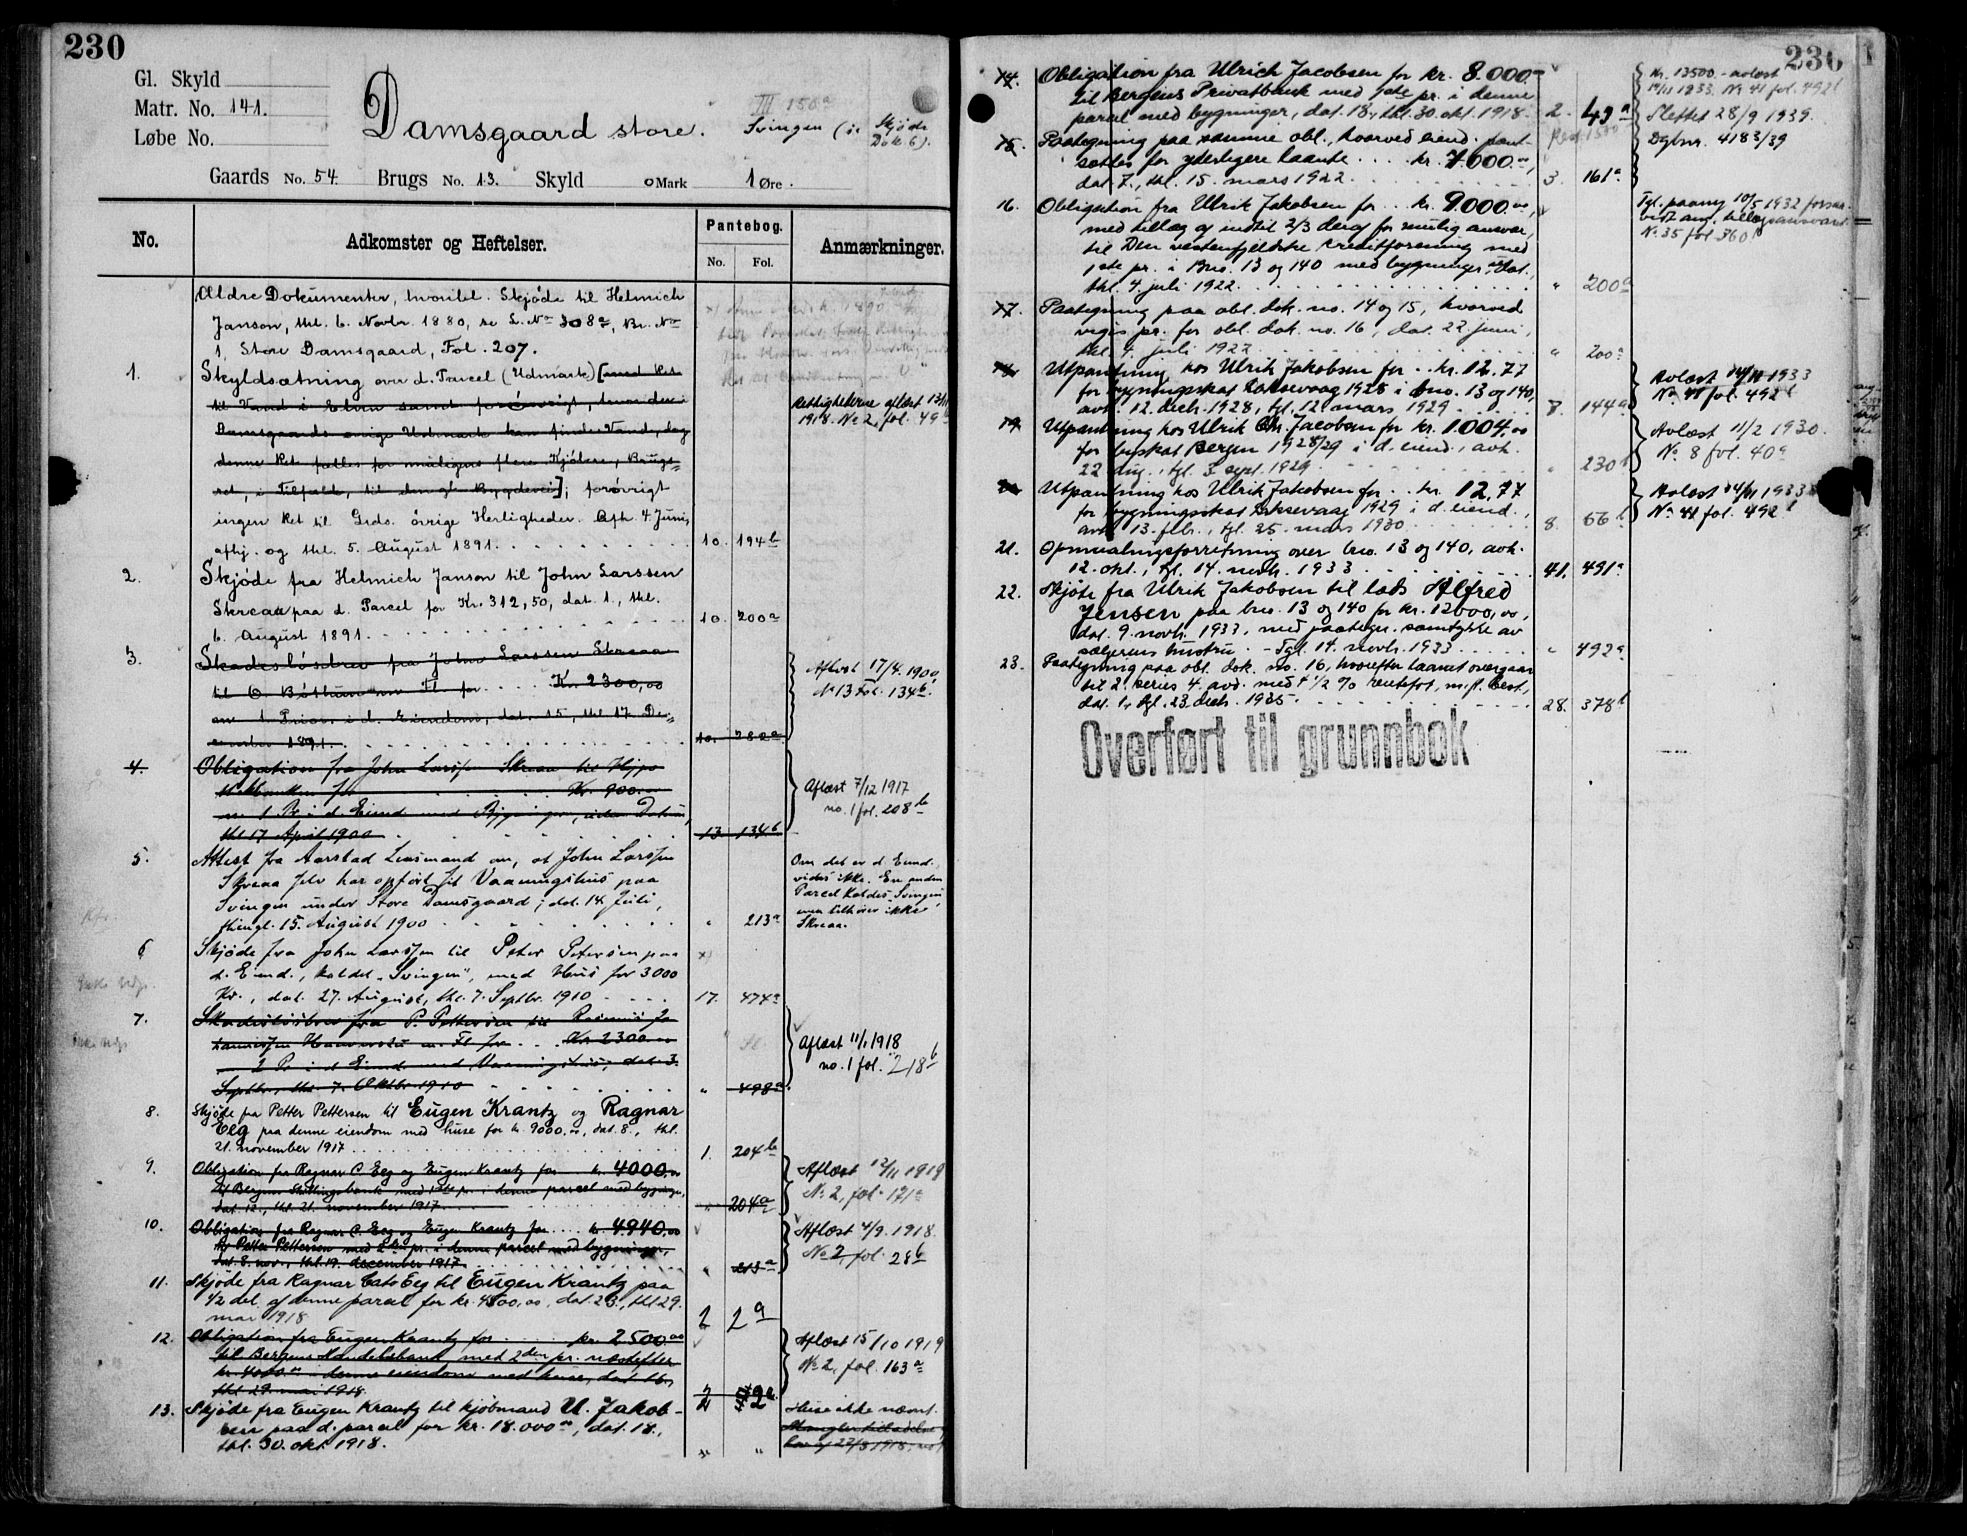 230
Gl. Skyld
Matr. No. 141.
Løbe No.
Damsgaard store.
III 150a
Svingen (se Skjøde
Dok 6).
Gaards No. 54. Brugs No. 13. Skyld 0 Mark 1 Øre.
No. Adkomster og Heftelser. Pantebog. Anmærkninger.
No. Fol.
Ældre Dokumenter, hvoribl. Skjøde til Helmich
Janson, thl. 6. Novbr. 1880, se L. No 308a, Br. No
1, Store Damsgaard, Fol. 207.
1. Skyldsætning over d. Parcel (Udmark) [med Ret
til Vand i Elven samt forøvrigt, hvor den i
Damsgaards øvrige Udmark kan finde Vand, dog
denne Ret fælles for muligens flere Kjøbere, Brugs-
ret, i Tilfælde, til den gl. Bygdevei]; forøvrigt
ingen Ret til Grds. øvrige Herligheder. Afh. 4. Juni,
afhj. og thl. 5. August 1891. 10. 194b
Rettighederne aflæst
1918. No 2, fol. 49
2. Skjøde fra Helmich Janson til John Larssen
Skreaa paa d. Parcel for Kr. 312,50, dat. 1., thl.
6. August 1891. 10. 200a
3. Skadesløsbrev fra John Larssen Skreaa
til C. Fl. for Kr. 2300,00
m. 1. Prior. i d. Eiendom, dat. 15, thl. 17. De-
cember 1891. 10. 282a
Aflæst 17/4. 1900,
No 13 Fol. 134b.
4. Obligation fra John Larssen Skreaa til Hypo
thekbanken for Kr. 900.00
m. 1. Pr. i d. Eiend. med Bygninger, uden Datum,
thl. 17. April 1900 13. 134b
Aflæst 7/12 1917
no. 1 fol. 208b
5. Attest fra Aarstad Lensmand om, at John Larssen
Skreaa selv har opført sit Vaaningshus paa
Svingen under Store Damsgaard; dat. 14. Juli,
thingl. 15. August 1900 " 213a
Om det er d. Eiend.
vides ikke. En anden
Parcel kaldes Svingen
men tilhører ikke
Skreaa.
6 Skjøde fra John Larssen til Peter Petersen paa
d. Eiend., kaldet "Svingen", med Hus for 3000
Kr., dat. 27. August, thl. 7. Septbr. 1910 17. 474a
7. Skadesløsbrev fra P. Pettersen til Rasmus Jo
hannessen m. Fl. for Kr. 2300.00
m. 1 Pr. i d. Eiend. med Vaaningshus, dat. 3.
Septbr., thl. 7. Oktbr. 1910 " 498a
Aflæst 11/1 1918
no. 1 fol. 218b
8. Skjøde fra Petter Pettersen til Eugen Krantz og Ragnar
Eeg paa denne eiendom med huse for kr. 9000,00, dat. 8., thl.
21. november 1917 1. 204b
9. Obligation fra Ragnar C. Eeg og Eugen Krantz for kr. 4000,00
til Bergens Skillingsbank med 1ste pr. i denne parcel med bygninger,
dat. 12., thl. 21. november 1917 " 204a
Aflæst 12/11 1919
No 2, fol. 171a
10. Obligation fra Ragnar C. Eeg og Eugen Krantz for kr. 4940,00
til Petter Pettersen med 2den pr. i denne parcel med bygninger,
dat. 8. nov., thl. 19. december 1917 " 213a
Aflæst 4/9. 1918.
No 2, fol. 28b
11. Skjøde fra Ragnar Cato Eeg til Eugen Krantz paa
1/2 del af denne parcel for kr. 4500,00, dat. 23., thl. 29.
mai 1918 2 2a
12. Obligation fra Eugen Krantz for kr. 2500.00
til Bergens Handelsbank med 2den pr. næstefter
kr. 4000.00 i denne eiendom med huse, dat. 16.,
thl. 29. mai 1918 2 2a
Aflæst 15/10 1919
No 2, fol. 163a
13. Skjøde fra Eugen Krantz til kjøbmand U. Jakob-
sen paa d. parcel for kr. 18.000.00, dat. 18.,
thl. 30. okt. 1918. " "
Huse ikke nævnt.
Mangler tilladelse
lov af 22/3 1918, no 1
230
14. Obligation fra Ulrich Jacobsen for kr. 8.000
til Bergens Privatbank med 1ste pr. i denne
parcel med bygninger, dat. 18., thl. 30. okt. 1918. 2. 49a
Kr. 13500.- avlæst
14/11 1933. No 41 fol. 492b
Slettet 28/9 1939.
Dgbnr. 4183/39
15. Paategning paa samme obl., hvorved eiend. pant-
sættes for yderligere laante kr. 7.000.00,
dat. 7., thl. 15. mars 1922 3. 161a
16. Obligation fra Ulrik Jakobsen for kr. 9.000.00,
med tillæg af indtil 2/3 deraf for mulig ansvar,
til Den vestenfjeldske kreditforening med
1ste pr. i Bno. 13 og 140 med bygninger, dat.,
thl. 4. juli 1922. " 200a
Tgl. paany 10/5 1932 forsaa-
vidt ang. tillægsansvaret
No 35 fol. 360b
17. Paategning paa obl. dok. no. 14 og 15, hvorved
viges pr. for obl. dok. no. 16, dat. 22. juni,
thl. 4. juli 1922 " 200a
18. Utpantning hos Ulrik Jakobsen for kr. 12,77
for bygningsskat Laksevaag 1928 i bno. 13 og 140,
avh. 12. decb. 1928, tgl. 12. mars 1929 7. 144a
Avlæst 14/11 1933
No 41 fol. 492b
19. Utpantning hos Ulrik Chr. Jacobsen for kr. 1.004,00
for byskat Bergen 1928/29 i d. eiend., avh.
22 aug., tgl. 3. sept. 1929 " 230b
Avlæst 11/2 1930.
No. 8 fol. 40a
20. Utpantning hos Ulrik Jakobsen for kr. 12,77
for bygningsskat Laksevaag 1929 i d. eiend.,
avh. 13. febr., tgl. 25. mars 1930 8. 66b
Avlæst 14/11 1933
No 41 fol. 492b
21. Opmaalingsforretning over bno. 13 og 140, avh.
12. okt., tgl. 14. novb. 1933 41. 491a
22. Skjøte fra Ulrik Jakobsen til lods Alfred
Jensen paa bno. 13 og 140 for kr. 12000,00,
dat. 9. novb. 1933, med paategn. samtykke av
sælgerens hustru. - Tgl. 14. novb. 1933 " 492a
23. Paategning paa obl. dok. no. 16, hvorefter laanet overgaar
til 2. series 4. avd. med 4 1/2 % rentefot, m.fl. best.,
dat. 1., tgl. 23. decb. 1935. 28. 378b
Overført til grunnbok